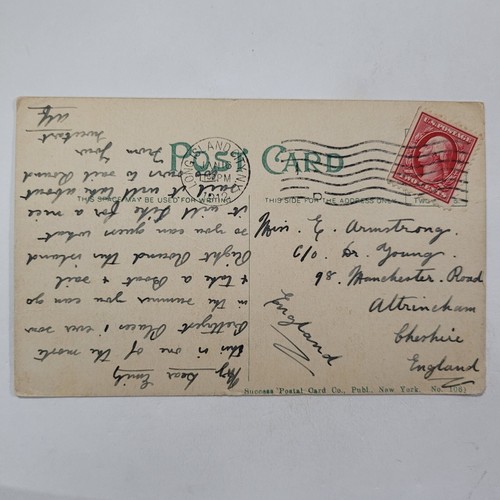 POST CARD
LONG ISLAND CITY, N.Y.
PM
THIS SPACE MAY BE USED FOR WRITING
THIS SIDE FOR THE ADDRESS ONLY
U.S. POSTAGE
Miss. E. Armstrong.
C/o. Dr. Young.
98. Manchester. Road
Altrincham
Cheshire
England
England
My Dear Emily
this is one of the moste
Prettyest Places I ever saw
in the summer you can go
& take a Boat & sail
Right Around this island
so you can guess what
it will Like for a nice
sail it will take about
hours to sail Around
from your
Success Postal Card Co., Publ., New York. No. 1081